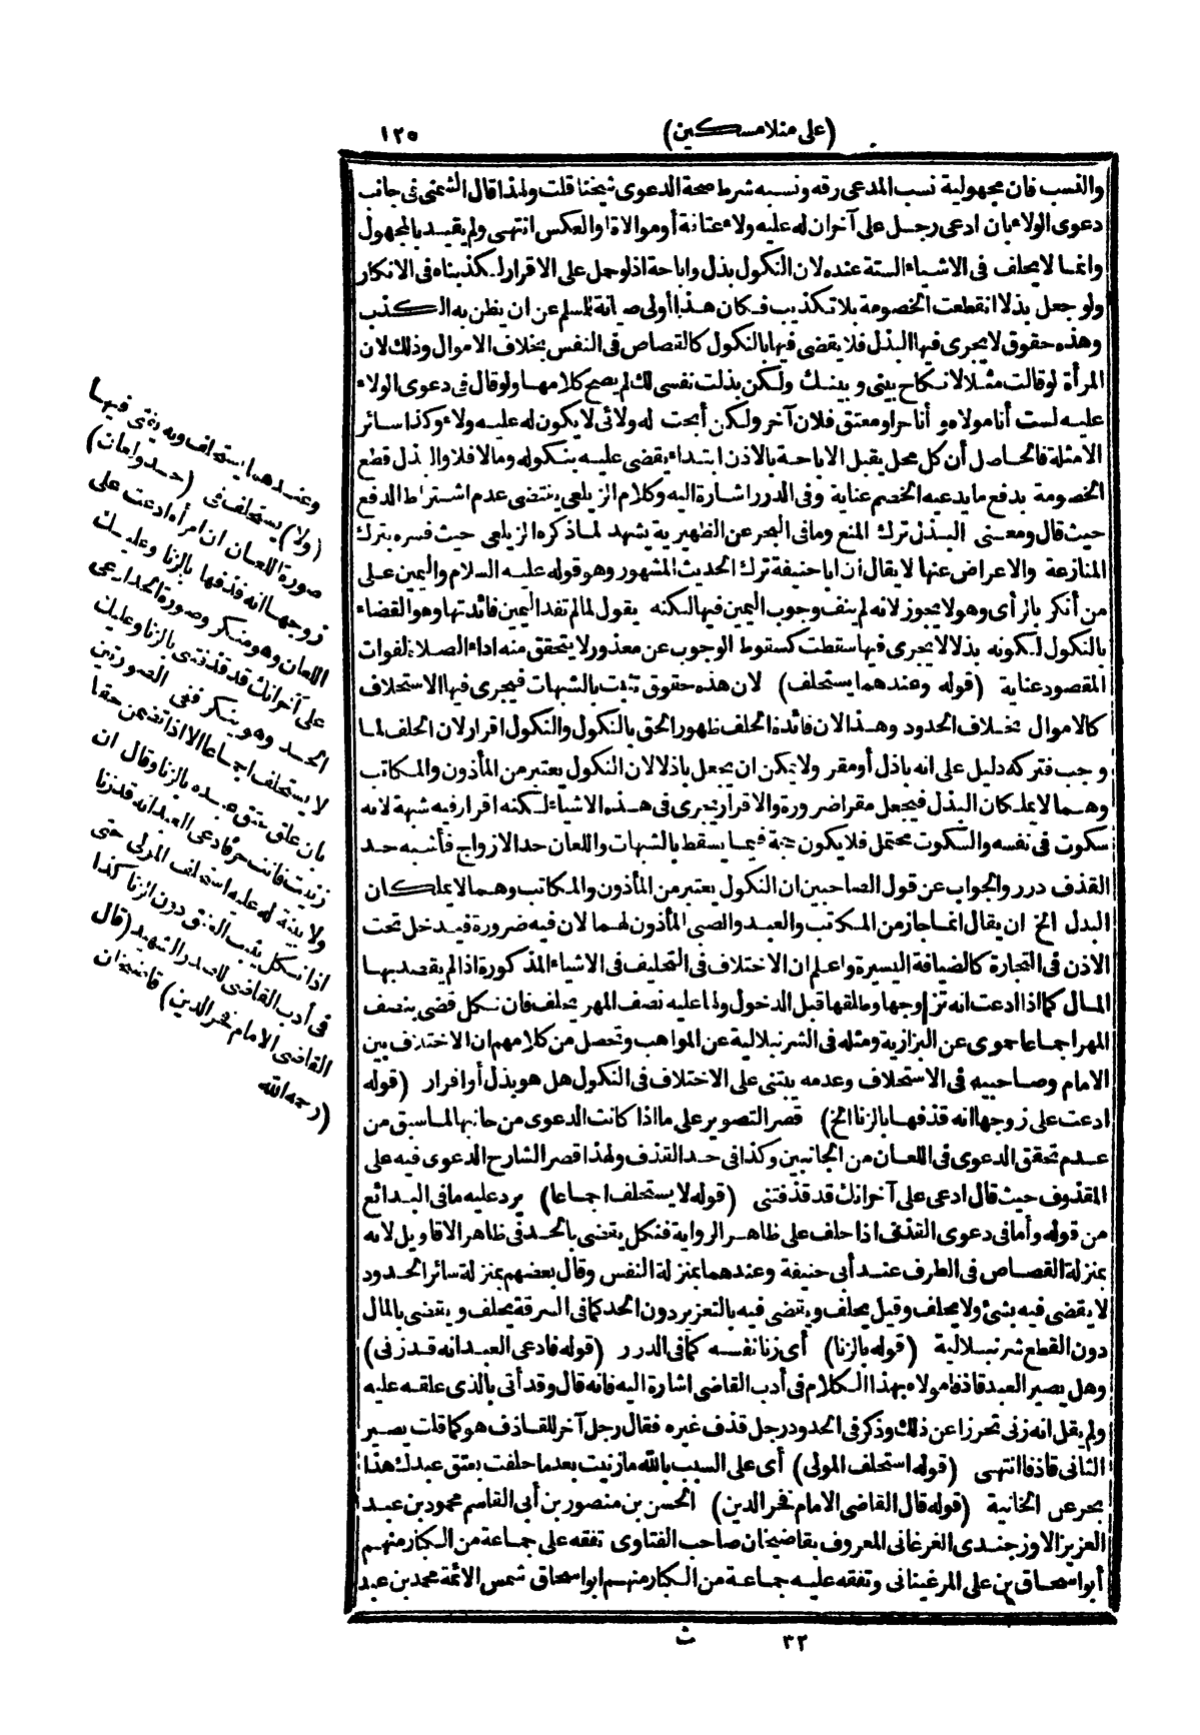 (على منلا مسكين)
١٢٥
والنسب فان مجهولية نسب المدعى رقه ونسبه شرط صحة الدعوى شيخنا قلت ولهذا قال الشمنى فى جانب
دعوى الولاء بان ادعى رجل على آخر ان له عليه ولاء عتاقة أو موالاة او العكس انتهى ولم يقيد بالمجهول
وانما لا يحلف فى الاشياء الستة عنده لان النكول بذل واباحة اذ لو حمل على الاقرار لكذبناه فى الانكار
ولو جعل بذلا انقطعت الخصومة بلا تكذيب فكان هذا أولى صيانة للمسلم عن ان يظن به الكذب
وهذه حقوق لا يجرى فيها البذل فلا يقضى فيها بالنكول كالقصاص فى النفس بخلاف الاموال وذلك لان
المرأة لو قالت مثلا لا نكاح بينى وبينك ولكن بذلت نفسى لك لم يصح كلامها ولو قال فى دعوى الولاء
عليه لست أنا مولاه و أنا حر او معتق فلان آخر ولكن أبحت له ولائى لا يكون له عليه ولاء وكذا سائر
الامثلة فالحاصل أن كل محل يقبل الاباحة بالاذن ابتداء يقضى عليه بنكوله وما لا فلا والبذل قطع
الخصومة بدفع ما يدعيه الخصم عناية وفى الدرر اشارة اليه وكلام الزيلعى يقتضى عدم اشتراط الدفع
حيث قال ومعنى البذل ترك المنع وما فى البحر عن الظهيرية يشهد لما ذكره الزيلعى حيث فسره بترك
المنازعة والاعراض عنها لا يقال أن ابا حنيفة ترك الحديث المشهور وهو قوله عليه السلام واليمين على
من أنكر بالرأى وهو لا يجوز لانه لم ينف وجوب اليمين فيها لكنه يقول لما لم تفد اليمين فائدتها وهو القضاء
بالنكول لكونه بذلا لا يجرى فيها سقطت كسقوط الوجوب عن معذور لا يتحقق منه اداء الصلاة لفوات
المقصود عناية (قوله وعندهما يستحلف) لان هذه حقوق تثبت بالشبهات فيجرى فيها الاستحلاف
كالاموال بخلاف الحدود وهذا لان فائدة الحلف ظهور الحق بالنكول والنكول اقرار لان الحلف لما
وجب فتركه دليل على انه باذل أو مقر ولا يمكن ان يجعل باذلا لان النكول يعتبر من المأذون والمكاتب
وهما لا يملكان البذل فيجعل مقرا ضرورة والاقرار يجرى فى هذه الاشياء لكنه اقرار فيه شبهة لانه
سكوت فى نفسه والسكوت محتمل فلا يكون حجة فيما يسقط بالشبهات واللعان حد الازواج فأشبه حد
القذف درر والجواب عن قول الصاحبين ان النكول يعتبر من المأذون والمكاتب وهما لا يملكان
البدل الخ ان يقال انما جاز من المكاتب والعبد والصبى المأذون لهما لان فيه ضرورة فيدخل تحت
الاذن فى التجارة كالضيافة اليسيرة واعلم ان الاختلاف فى التحليف فى الاشياء المذكورة اذا لم يقصد بها
المال كما اذا ادعت انه تزوجها وطلقها قبل الدخول ولها عليه نصف المهر يحلف فان نكل قضى بنصف
المهر اجماعا حموى عن البزازية ومثله فى الشرنبلالية عن المواهب وتحصل من كلامهم ان الاختلاف بين
الامام وصاحبيه فى الاستحلاف وعدمه يبتنى على الاختلاف فى النكول هل هو بذل أو اقرار (قوله
ادعت على زوجها انه قذفها بالزنا الخ) قصر التصوير على ما اذا كانت الدعوى من جانبها لما سبق من
عدم تحقق الدعوى فى اللعان من الجانبين وكذا فى حد القذف ولهذا قصر الشارح الدعوى فيه على
المقذوف حيث قال ادعى على آخر انك قد قذفتنى (قوله لا يستحلف اجماعا) يرد عليه ما فى البدائع
من قوله وأما فى دعوى القذف اذا حلف على ظاهر الرواية فنكل يقضى بالحد فى ظاهر الاقاويل لانه
بمنزلة القصاص فى الطرف عند أبى حنيفة وعندهما بمنزلة النفس وقال بعضهم بمنزلة سائر الحدود
لا يقضى فيه بشئ ولا يحلف وقيل يحلف ويقضى فيه بالتعزير دون الحد كما فى السرقة يحلف ويقضى بالمال
دون القطع شرنبلالية (قوله بالزنا) أى زنا نفسه كما فى الدرر (قوله فادعى العبد انه قد زنى)
وهل يصير العبد قاذفا مولاه بهذا الكلام فى أدب القاضى اشارة اليه فانه قال وقد أتى بالذى علقه عليه
ولم يقل انه زنى تحرزا عن ذلك وذكر فى الحدود رجل قذف غيره فقال رجل آخر للقاذف هو كما قلت يصير
الثانى قاذفا انتهى (قوله استحلف المولى) أى على السبب بالله ما زنيت بعدما حلفت بعتق عبدك هذا
بحر عن الخانية (قوله قال القاضى الامام فخر الدين) الحسن بن منصور بن أبى القاسم محمود بن عبد
العزيز الاوزجندى الفرغانى المعروف بقاضيخان صاحب الفتاوى تفقه على جماعة من الكبار منهم
أبو اسحاق بن على المرغينانى وتفقه عليه جماعة من الكبار منهم ابو اسحاق شمس الائمة محمد بن عبد
وعندهما يستحلف وبه يفتى فيها
(ولا) يستحلف فى (حد ولعان)
صورة اللعان ان امرأة ادعت على
زوجها انه قذفها بالزنا وعليك
اللعان وهو منكر وصورة الحد ادعى
على آخر انك قد قذفتنى بالزنا وعليك
الحد وهو ينكر ففى الصورتين
لا يستحلف اجماعا الا اذا تضمن حقا
بان علق عتق عبده بالزنا وقال ان
زنيت فانت حر فادعى العبد انه قد زنا
ولا بينة له عليه استحلف المولى حتى
اذا نكل يثبت العتق دون الزنا كذا
فى أدب القاضى للصدر الشهيد (قال
القاضى الامام فخر الدين) قاضيخان
(رحمه الله
٣٢
ث